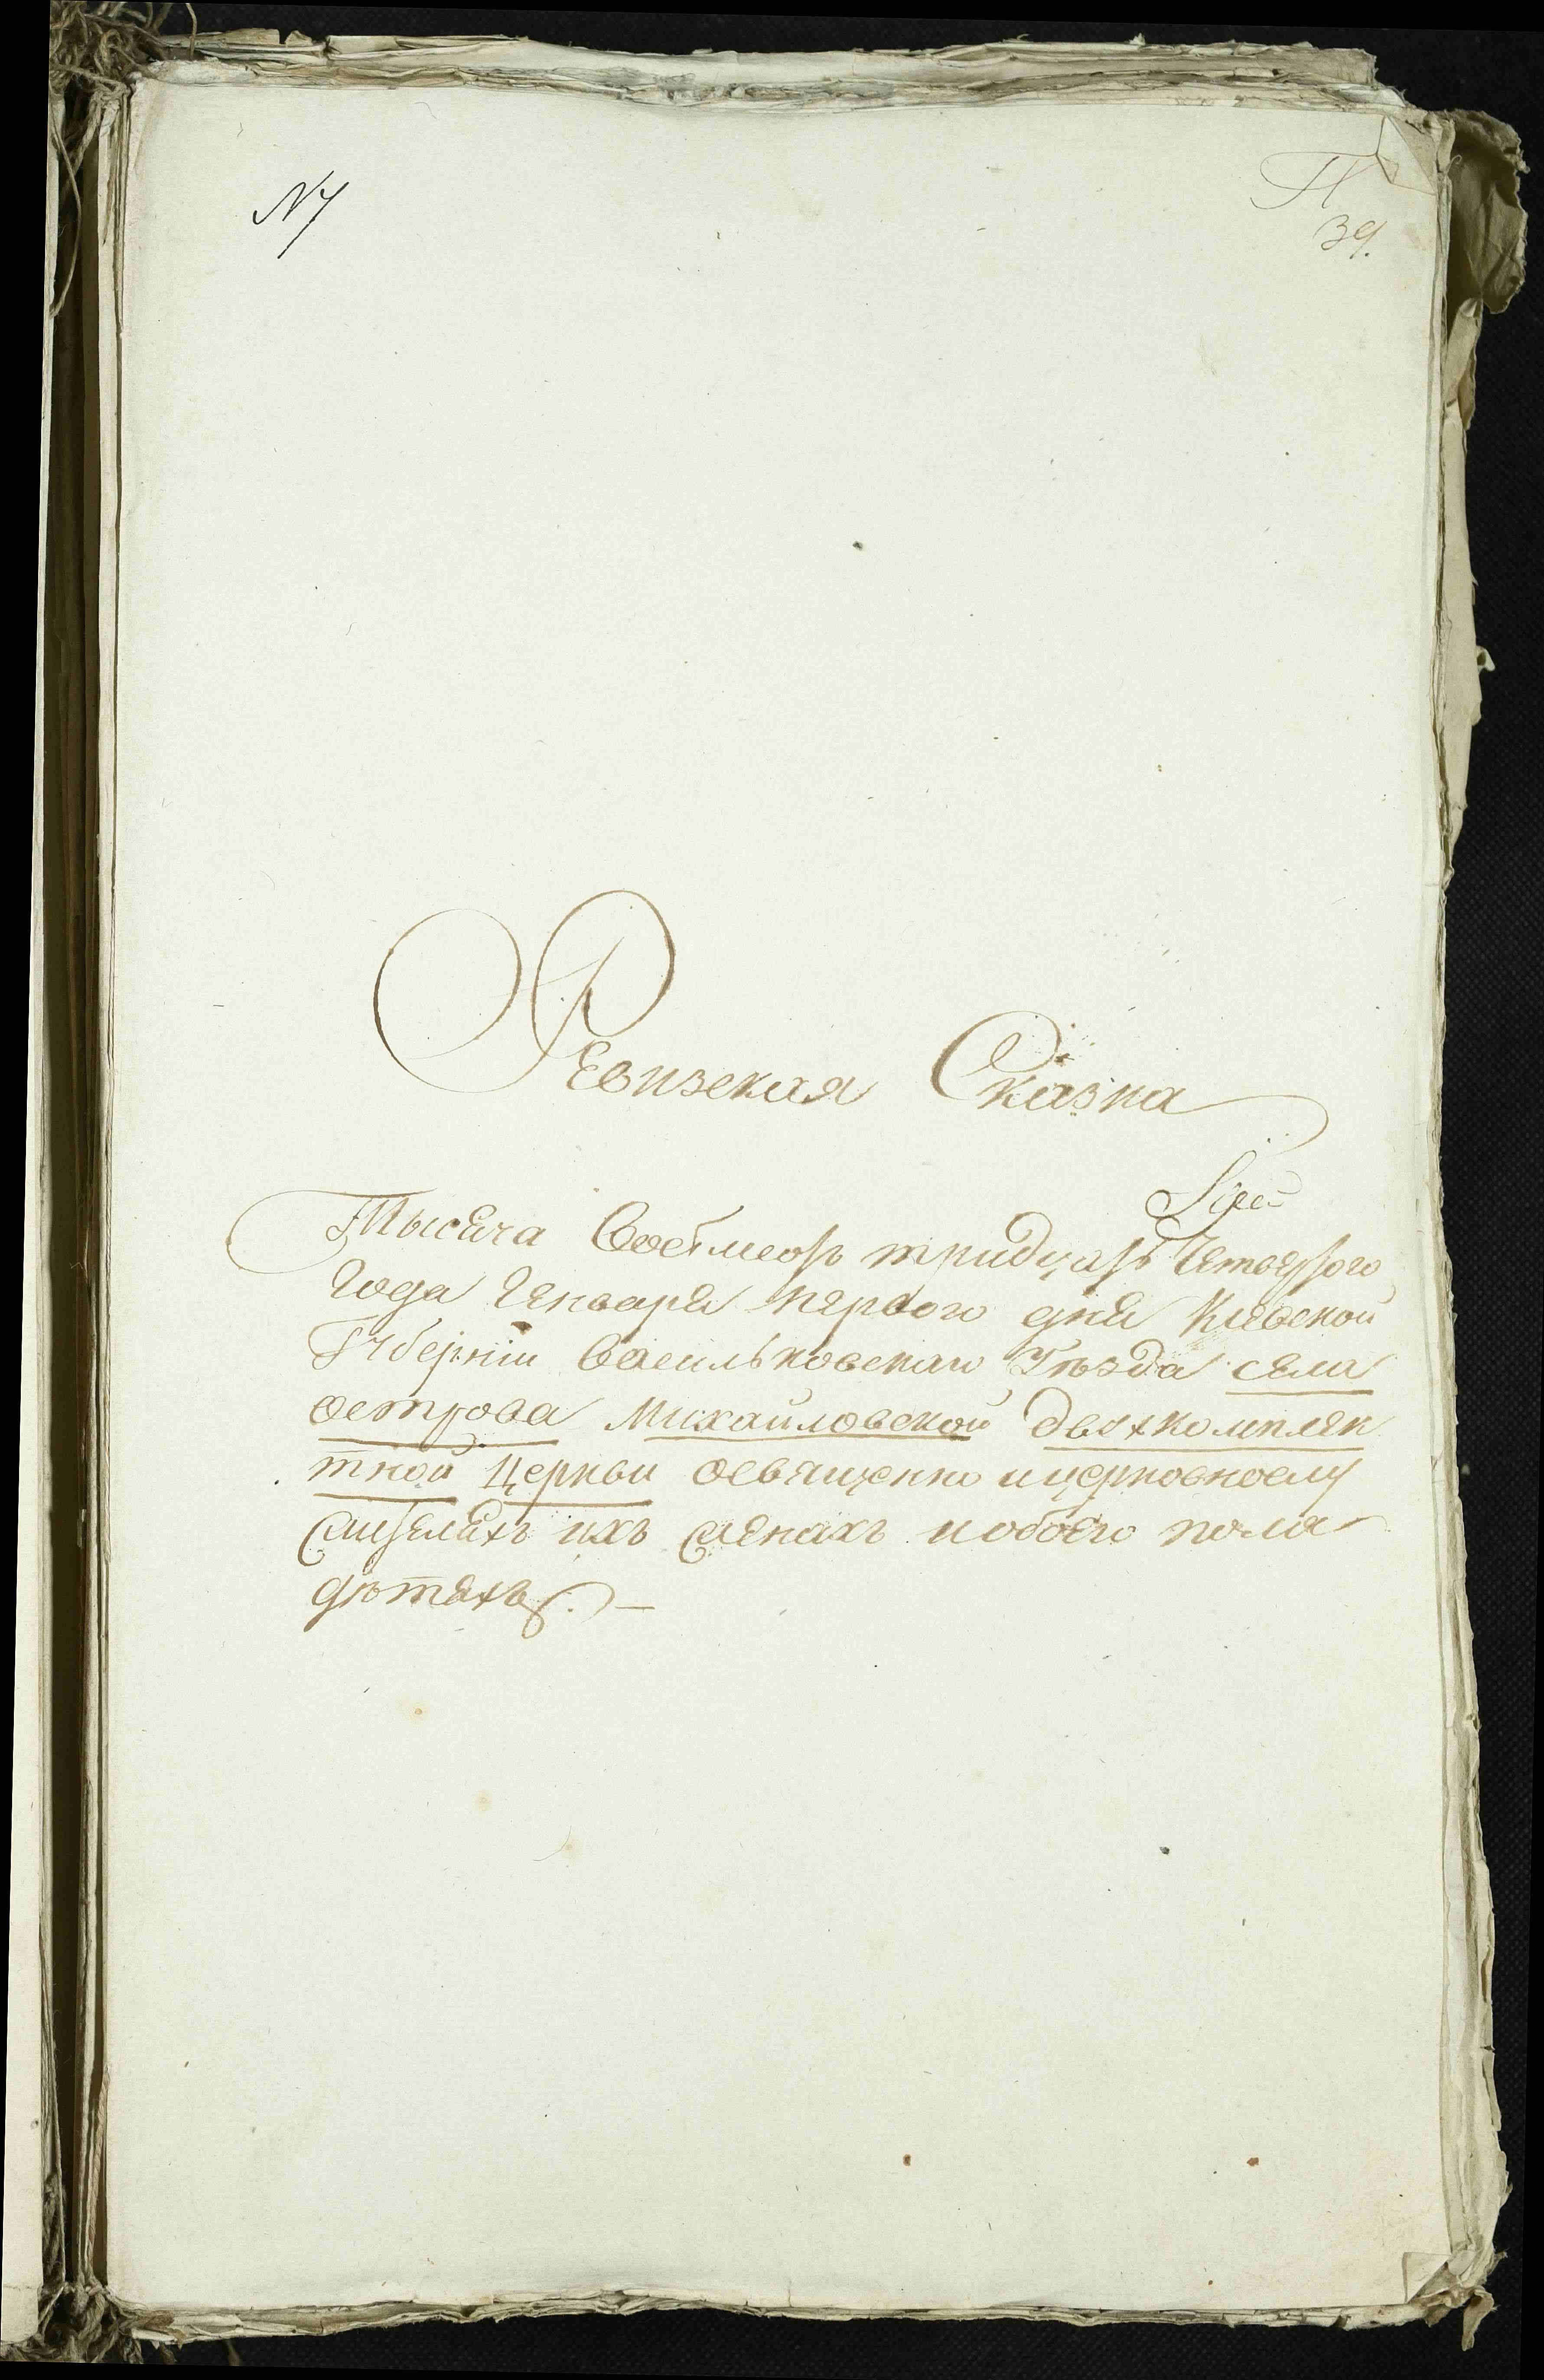 N 7
39.
Ревизская Сказка
Тысяча Восемсотъ тридцать Четвертого
Года Генваря первого дня Киевской
Губерніи Васильковскаго Уезда села
острова Михайловской двухкомплек
тной Церкви освященно и церковно
ихъ женахъ и обоего пола
дѣтяхъ. —